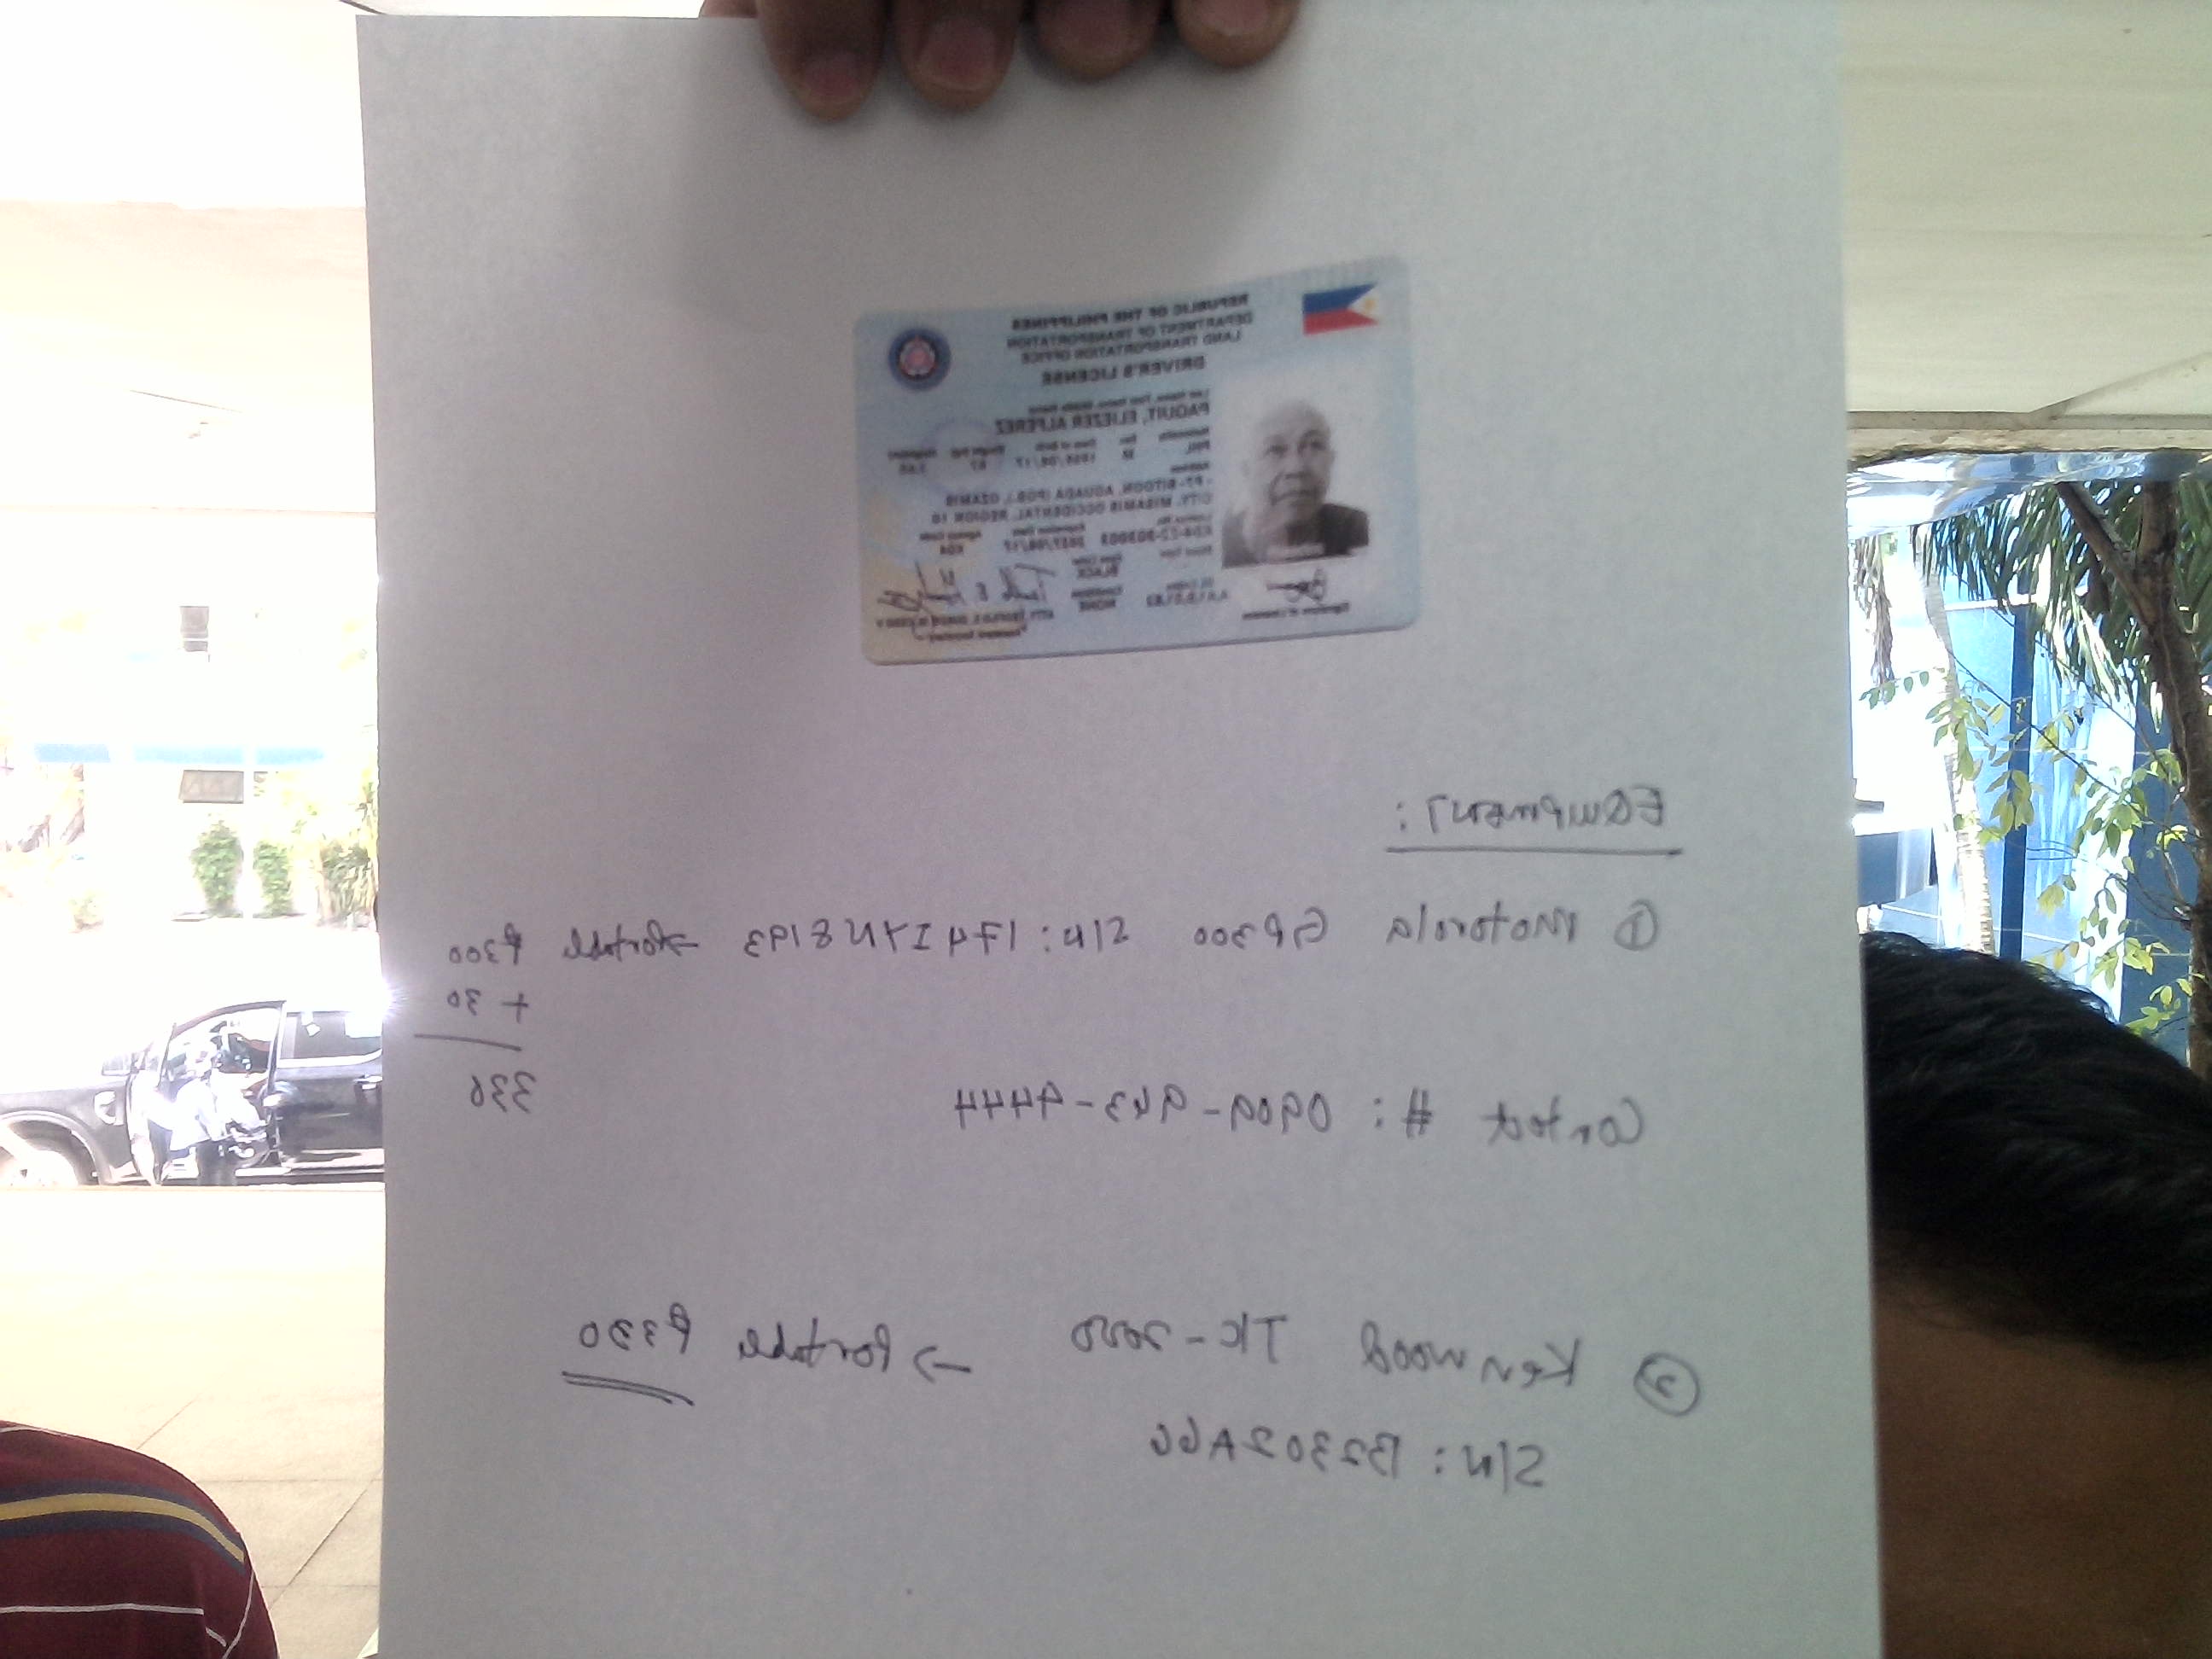 REPUBLIC OF THE PHILIPPINES
DEPARTMENT OF TRANSPORTATION
LAND TRANSPORTATION OFFICE
DRIVER'S LICENSE
Last Name, First Name, Middle Name
PAQUIT, ELIEZER ALFEREZ
Nationality Sex Date of Birth Weight (kg) Height(m)
PHL M
Address
BITOON, AGUADA (POB.), OZAMIS
CITY, MISAMIS OCCIDENTAL, REGION 10
License No. Expiration Date Agency Code
2027/08/17 K04
Blood Type Eyes Color
BLACK
DL Codes Conditions
NONE
Signature of Licensee
Assistant Secretary
EQuipmenT :
① Motorola GP300 S/N: 174IYN8193 → Portable ₱300
+ 30
330
Contact # : 0909-963-9444
② Kenwood TK-2000 → Portable ₱330
S/N : B2302A66